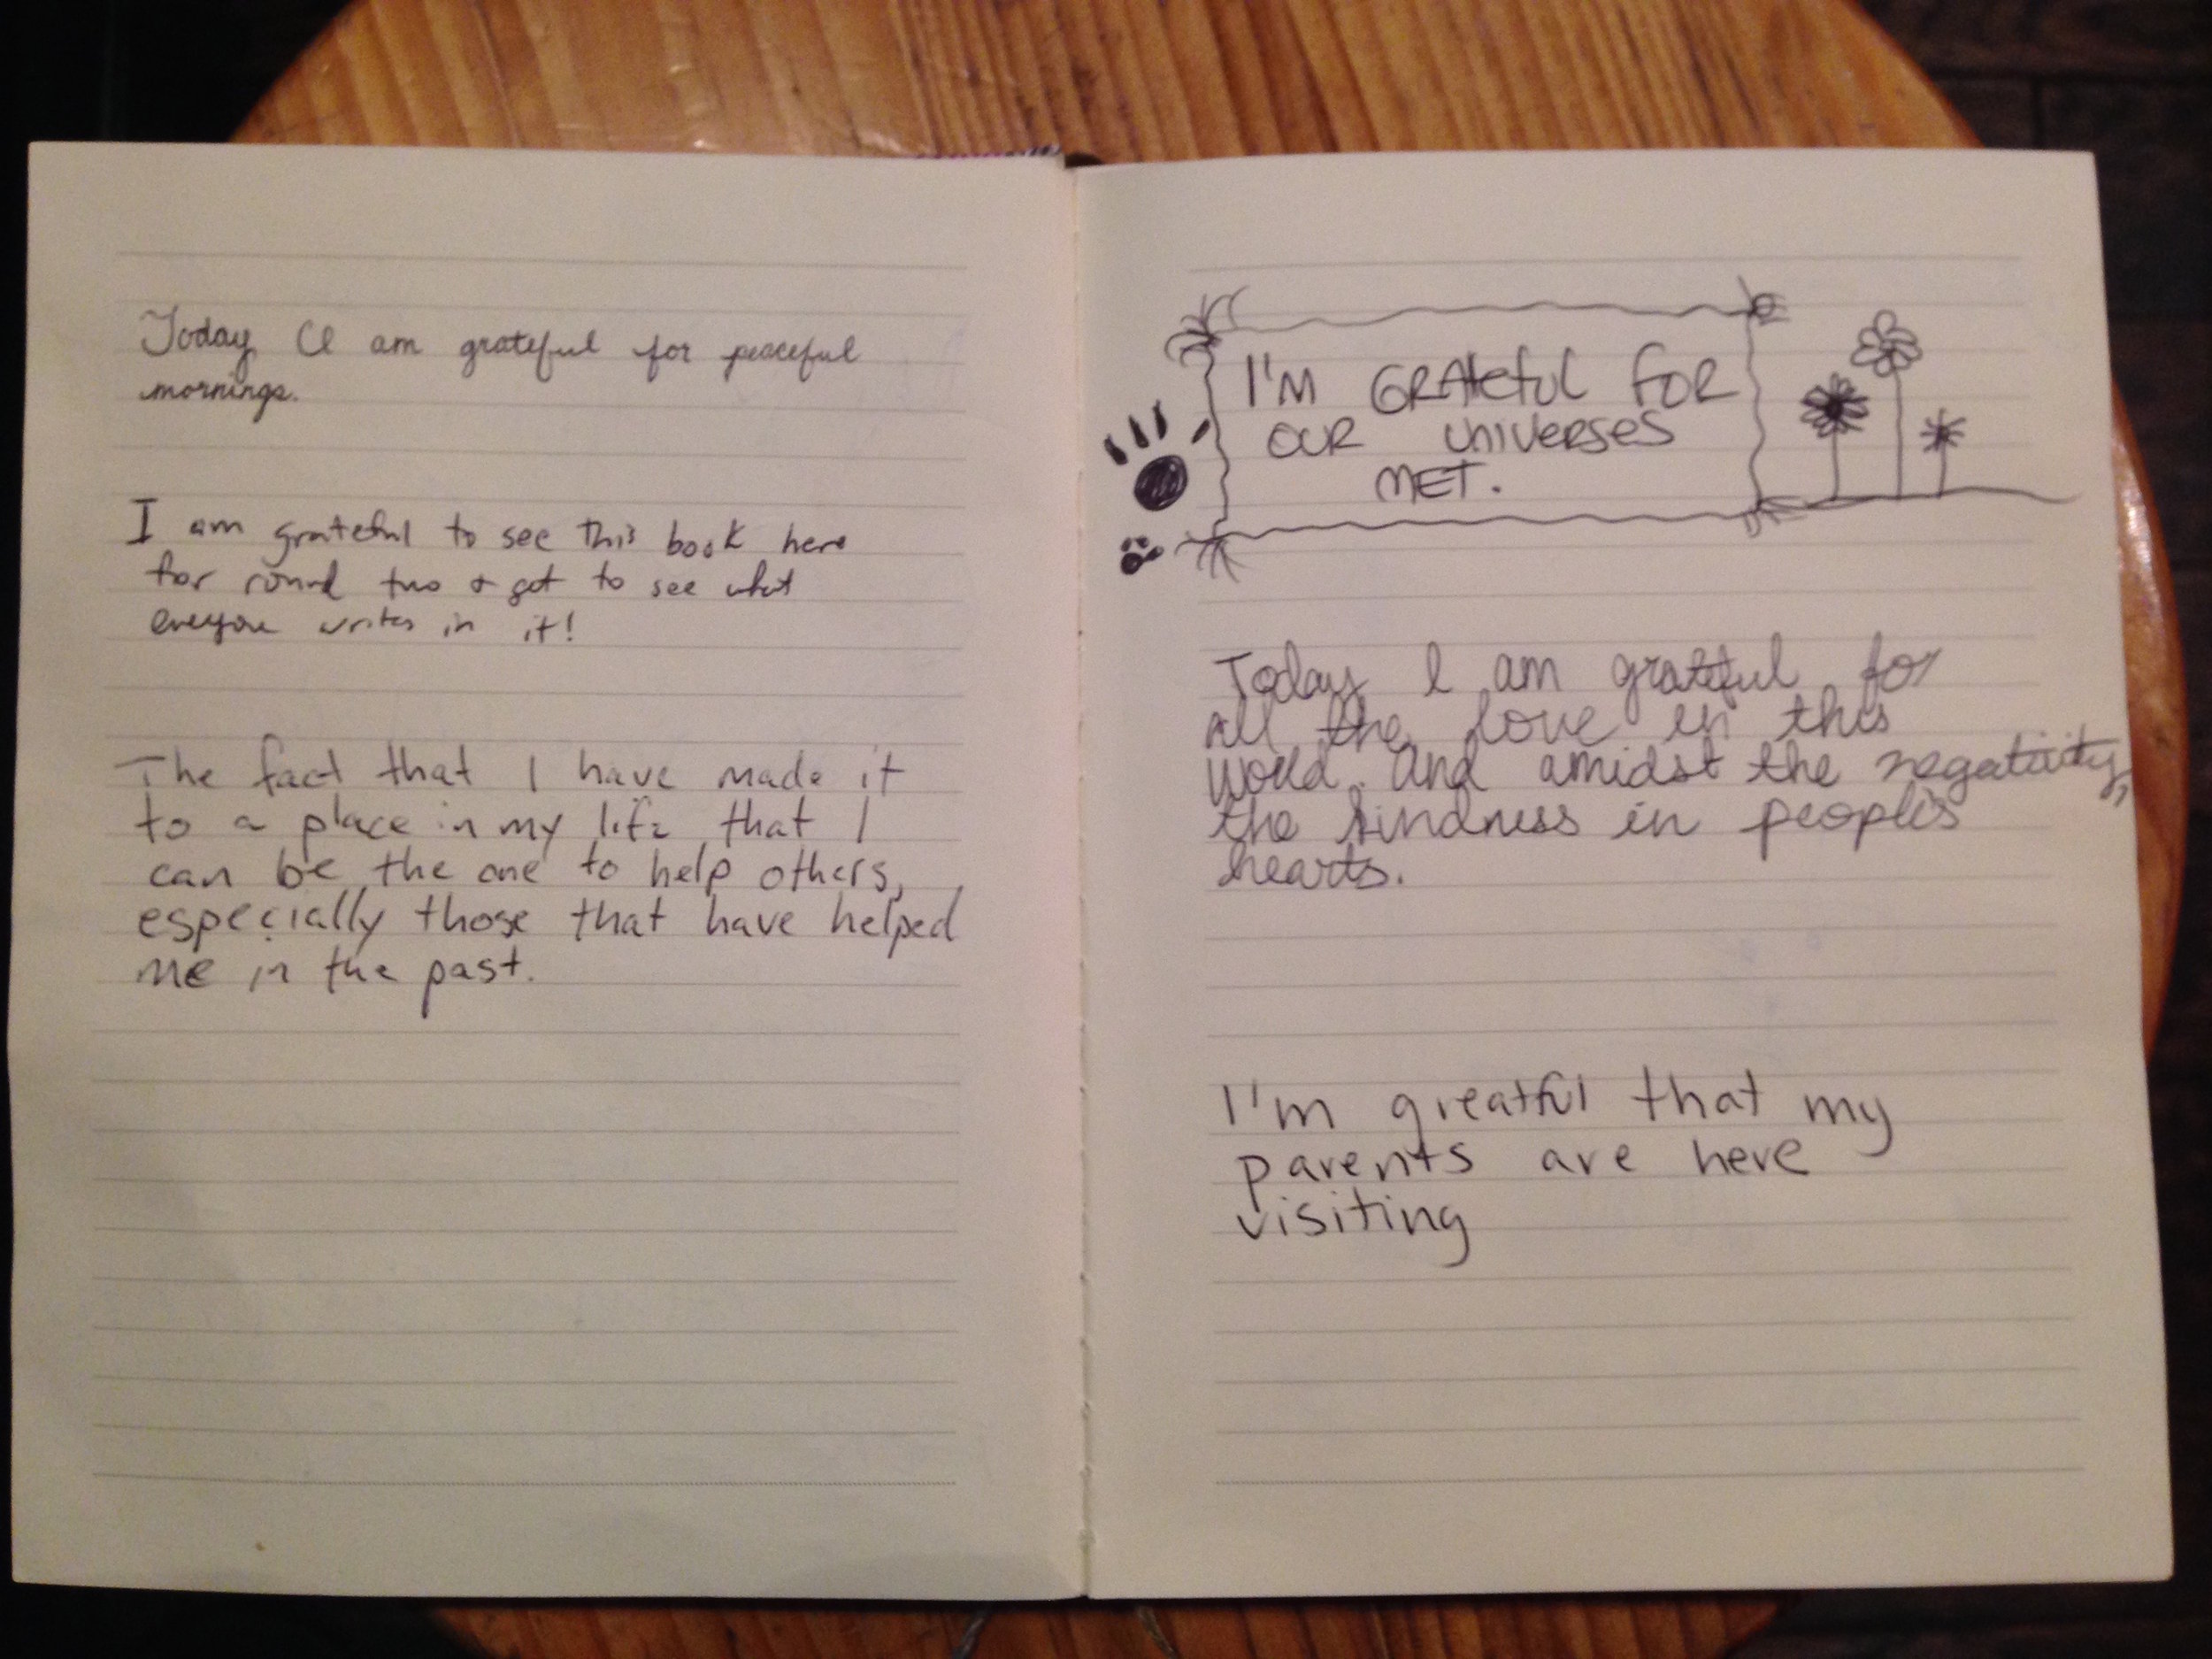 Today I am grateful for peaceful
mornings.
I am grateful to see this book here
for round two & get to see what
everyone writes in it!
The fact that I have made it
to a place in my life that I
can be the one to help others,
especially those that have helped
me in the past.
I'M GRAteful FOR
OUR UNIVERSES
MET.
Today I am grateful for
all the love in this
world. And amidst the negativity,
the kindness in people's
hearts.
I'm greatful that my
parents are here
visiting